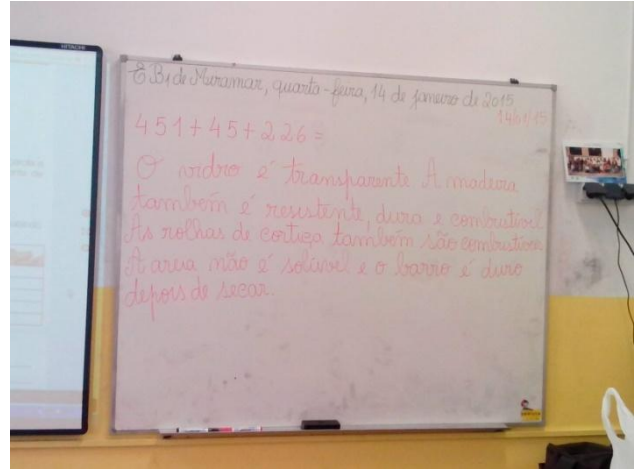 HITACHI
EB1 de Miramar, quarta-feira, 14 de janeiro de 2015
14/01/15
451+45+226=
O vidro é transparente. A madeira
também é resistente, dura e combustível.
As rolhas de cortiça também são combustíveis.
A areia não é solúvel e o barro é duro
depois de secar.